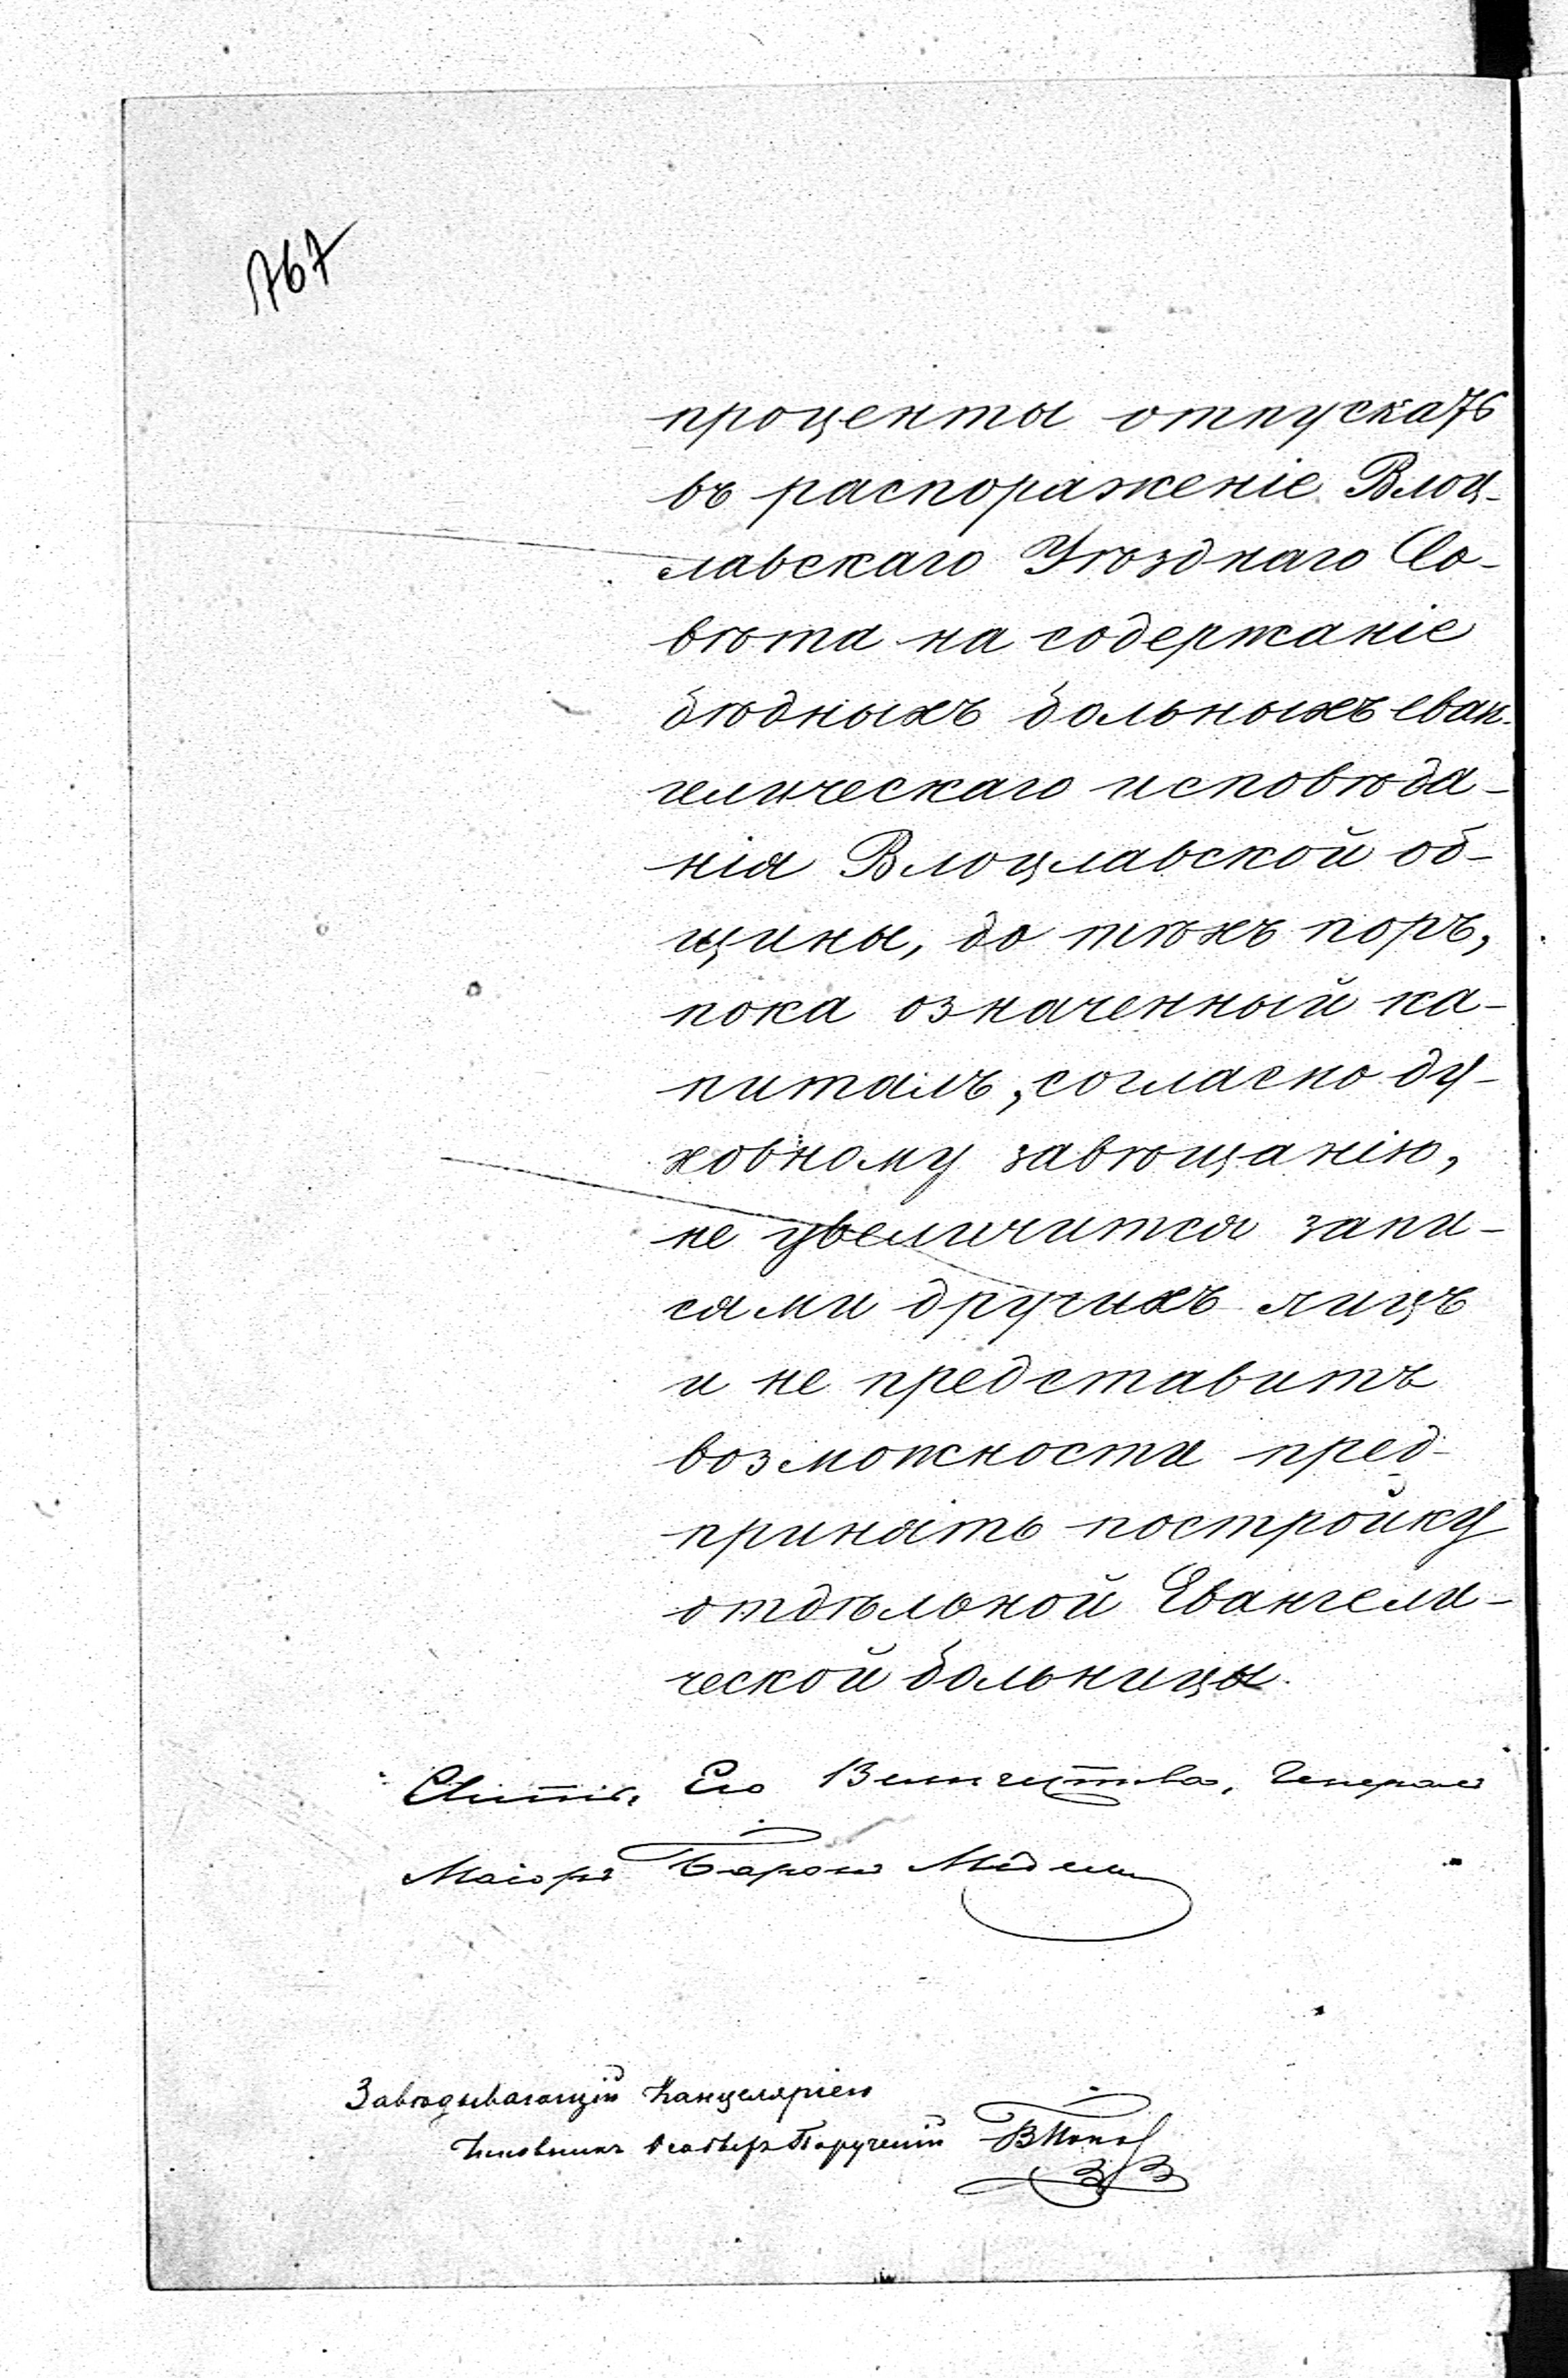 767
проценты отпускать
въ распоряженіе Влоц-
лавскаго Уѣзднаго Со-
вѣта на содержаніе
бѣдныхъ больныхъ еван-
гелическаго исповѣда-
нія Влоцлавской об-
щины, до тѣхъ поръ,
пока означенный ка-
питалъ, согласно ду-
ховному завѣщанію,
не увеличится запи-
сями другихъ лицъ
и не представитъ
возможности пред-
принять постройку
отдѣльной Евангели-
ческой больницы.
Свиты Его Величества, Генералъ
Маіоръ Баронъ Медемъ
Завѣдывающій Канцеляріею
Чиновникъ Особыхъ Порученій